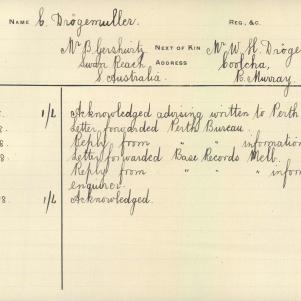 NAME C. Drögemuller. REG. &c.
Mr B. Gershwitz NEXT OF KIN Mr W. H. Dröge
Swan Reach, ADDRESS Coolcha,
S. Australia. R. Murray.
1/2 Acknowledged advising written to Perth
8. Letter forwarded Perth Bureau.
8. Reply from " " information
8. Letter forwarded Base Records Melb.
Reply from " " " infor
enquirer.
8. 1/2 Acknowledged.